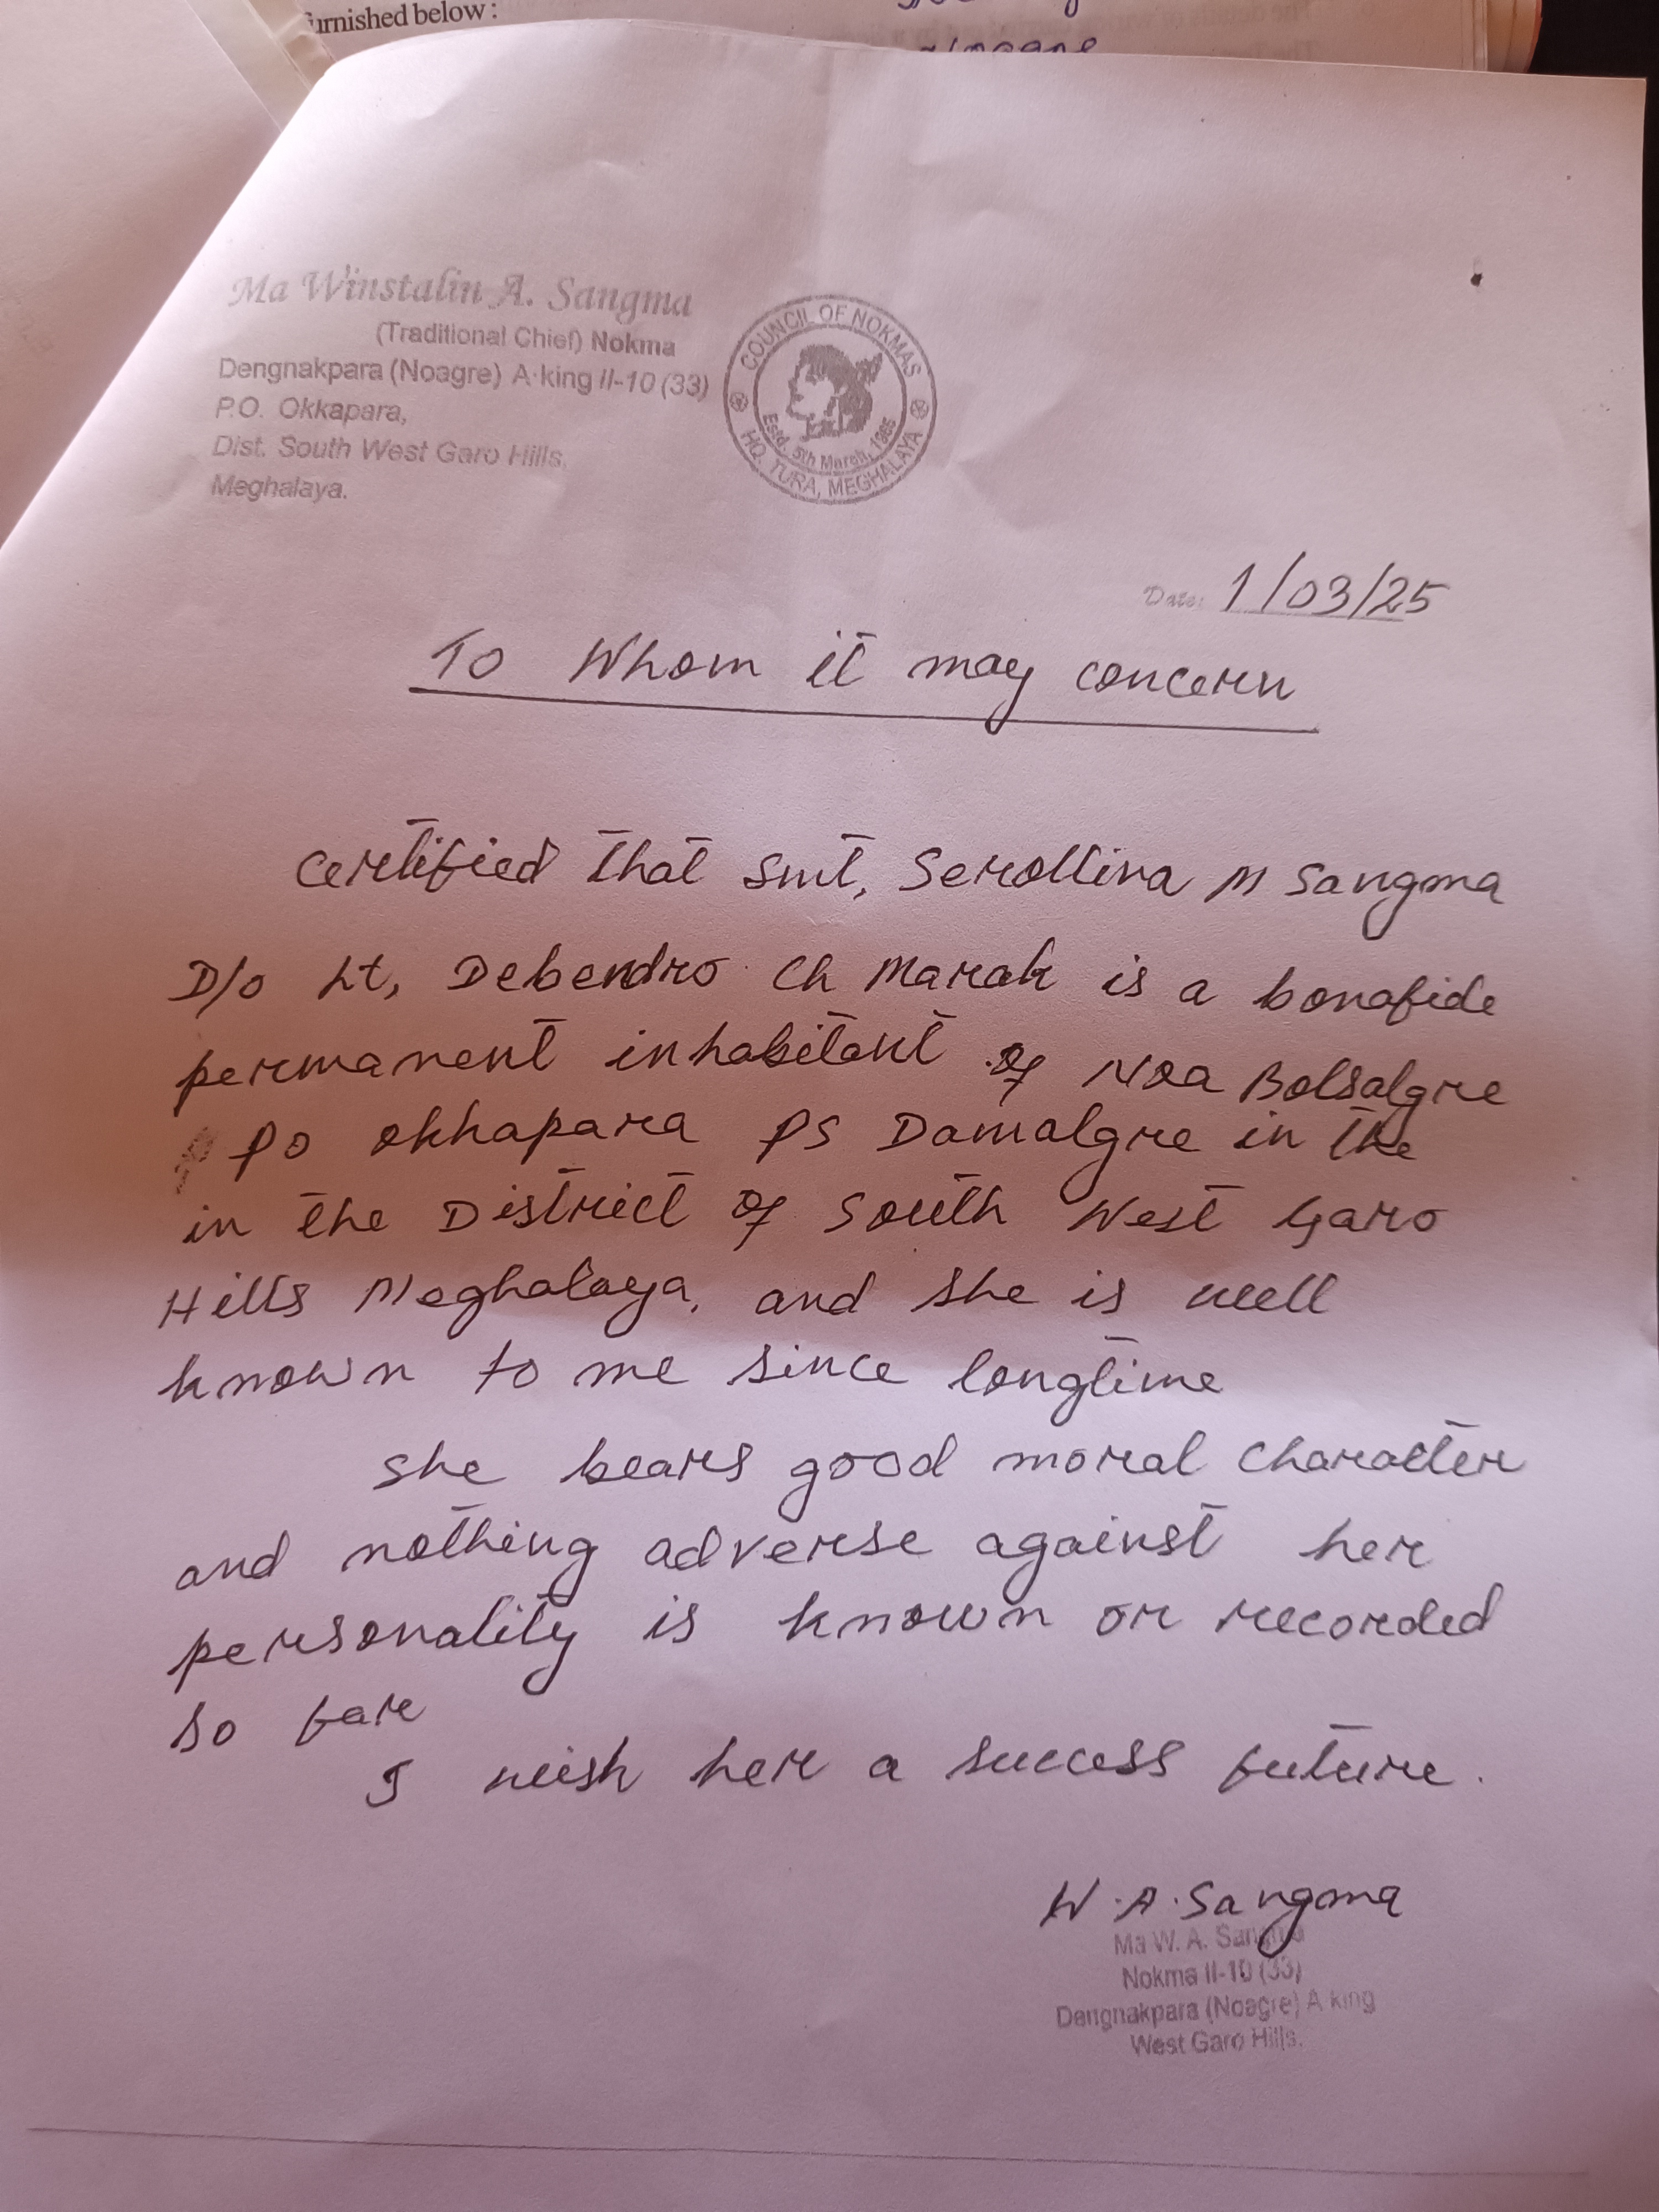 urnished below :
Ma Winstalin A. Sangma
(Traditional Chief) Nokma
Dengnakpara (Noagre) A·king II-10 (33)
P.O. Okkapara,
Dist. South West Garo Hills,
Meghalaya.
COUNCIL OF NOKMAS
Estd. 5th March, 1965
HQ. TURA, MEGHALAYA
Date: 1/03/25
To Whom it may concern
Certified that Smt, Serollina M Sangma
D/o Lt, Debendro Ch Marak is a bonafide
permanent inhabitant of Noa Bolsalgre
PO Okhapara PS Damalgre in the
in the District of South West Garo
Hills Meghalaya, and she is well
known to me since longtime
She bears good moral Character
and nothing adverse against her
personality is known or recorded
so far
I wish her a success future.
W.A. Sangma
Ma W. A. Sangma
Nokma II-10 (33)
Dengnakpara (Noagre) A·king
West Garo Hills.